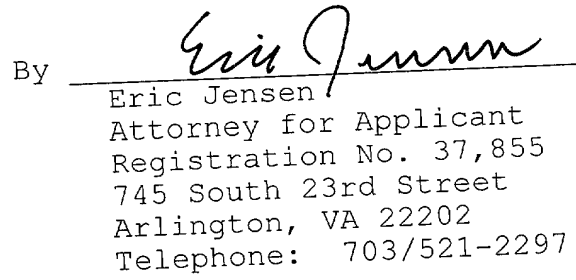 Eric Jensen
By
Eric Jensen
Attorney for Applicant
Registration No. 37,855
745 South 23rd Street
Arlington, VA 22202
Telephone: 703/521-2297